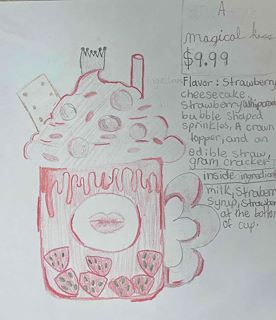 A
magical kiss
$9.99
Flavor: Strawberry
cheesecake.
Strawberry/whip
bubble shaped
sprinkles, A crown
topper, and an
edible straw,
gram cracker
inside ingredients
milk, Strawberry
Syrup, Strawberry
at the bottom
of cup.